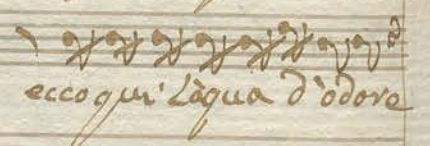 ecco qui' Làqua d'odore